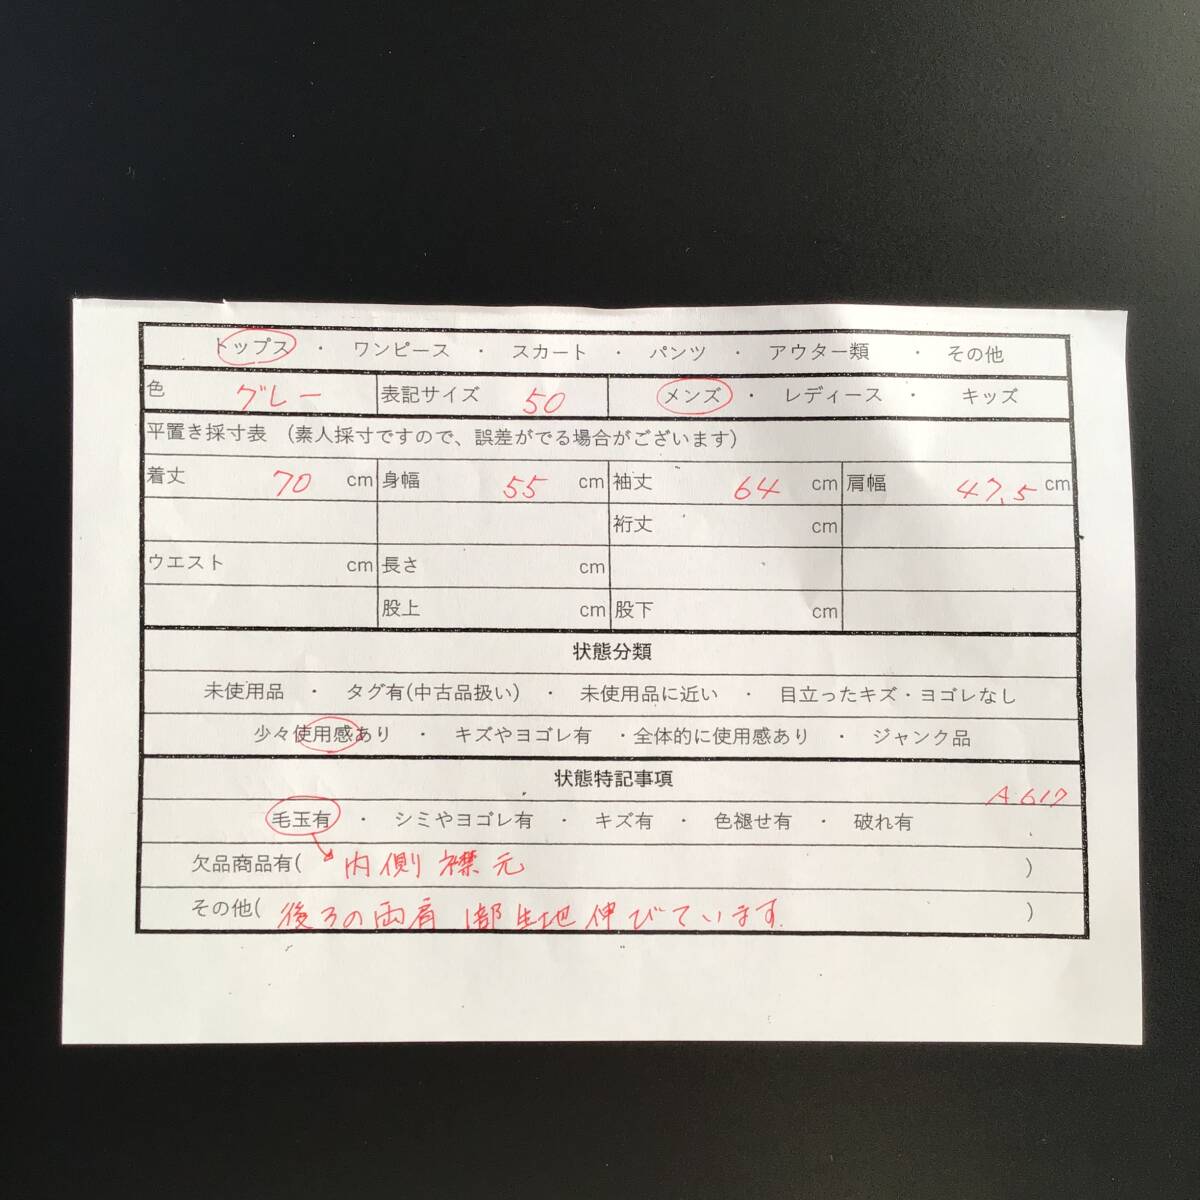 トップス ・ ワンピース ・ スカート ・ パンツ ・ アウター類 ・ その他
色 グレー 表記サイズ 50 メンズ ・ レディース ・ キッズ
平置き採寸表 （素人採寸ですので、誤差がでる場合がございます）
着丈 70 cm 身幅 55 cm 袖丈 64 cm 肩幅 47.5 cm
裄丈 cm
ウエスト cm 長さ cm
股上 cm 股下 cm
状態分類
未使用品 ・ タグ有(中古品扱い) ・ 未使用品に近い ・ 目立ったキズ・ヨゴレなし
少々使用感あり ・ キズやヨゴレ有 ・全体的に使用感あり ・ ジャンク品
状態特記事項
A617
毛玉有 ・ シミやヨゴレ有 ・ キズ有 ・ 色褪せ有 ・ 破れ有
欠品商品有( 内側 襟元 )
その他( 後ろの両肩 1部生地伸びています. )